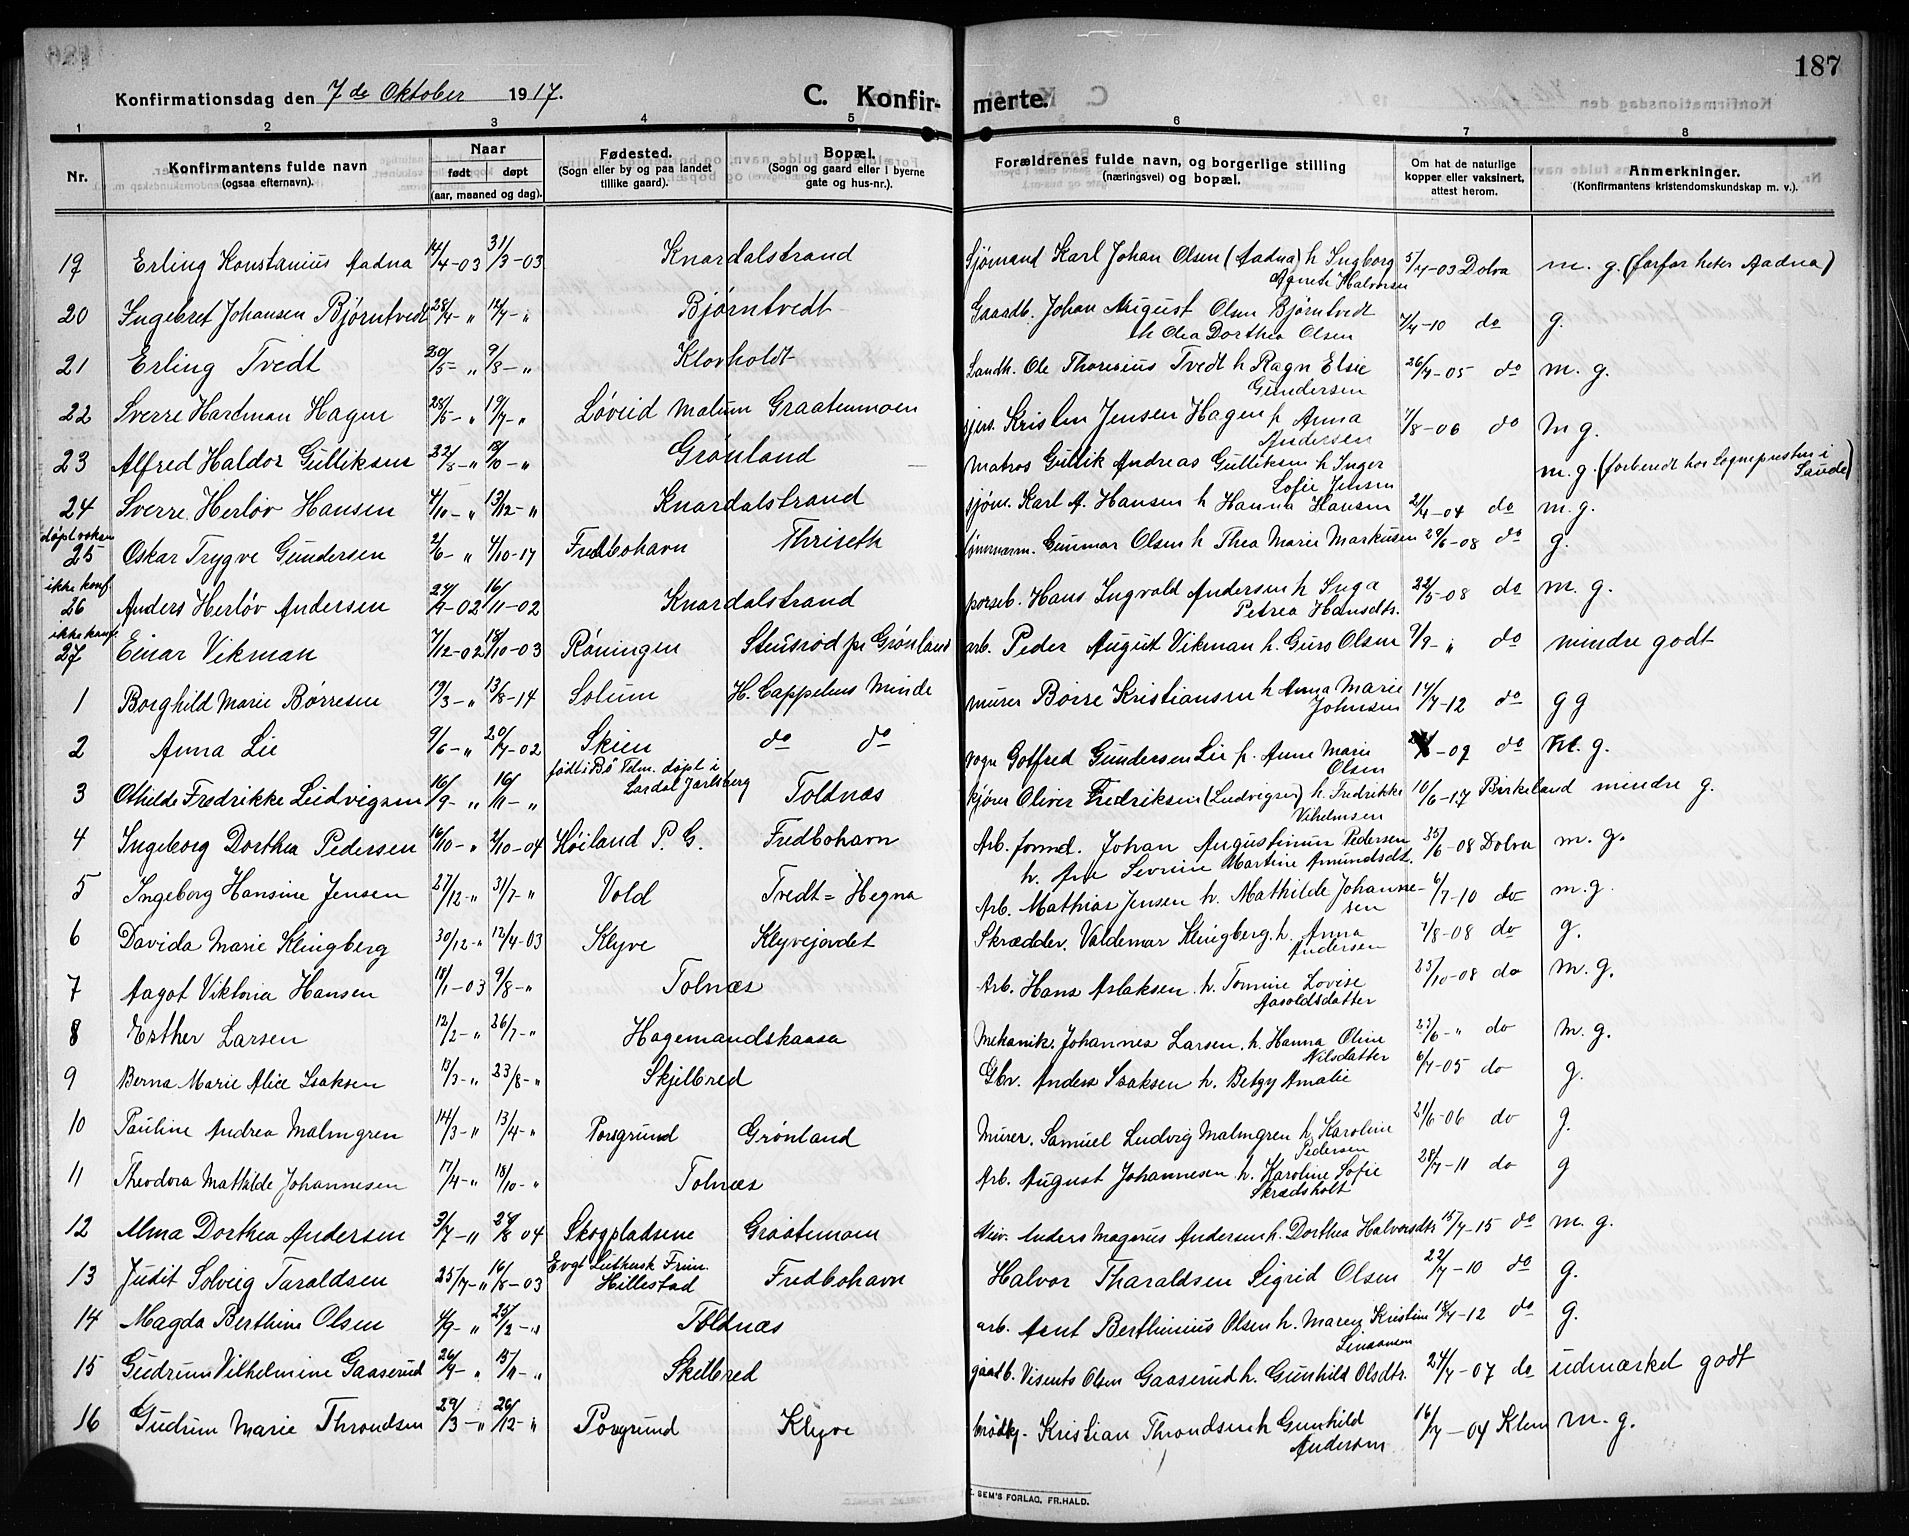 187
Konfirmationsdag den 7 de Oktober 1917.
C. Konfir- merte.
1 2 3 4 5 6 7 8
Nr. Konfirmantens fulde navn (ogsaa efternavn). Naar født døpt (aar, maaned og dag). Fødested. (Sogn eller by og paa landet tillike gaard). Bopæl. (Sogn og gaard eller i byerne gate og hus-nr.). Forældrenes fulde navn, og borgerlige stilling (næringsvei) og bopæl. Om hat de naturlige kopper eller vaksinert, attest herom. Anmerkninger. (Konfirmantens kristendomskundskap m. v.).
19 Erling Konstanius Aadna 14/4-03 31/3-03 Knardalstrand Sjømand Karl Johan Olsen (Aadna) h Ingborg Agnete Halvorsen 5/7-03 Dolva m. g. (farfar heter Aadna)
20 Ingebret Johansen Bjørntvedt 28/4- " 12/7- " Bjørntvedt Gaardb. Johan August Olsen Bjørntvedt h Olea Dorthea Olsen 7/7-10 do g.
21 Erling Tvedt 20/5- " 9/8- " Klovholdt Landh. Ole Thoresius Tvedt h Ragn Elsie Gundersen 26/7-05 do m. g.
22 Sverre Hardman Hagen 28/5- " 19/7- " Løveid Melum Graatenmoen Kristen Jensen Hagen h Anna Andersen 7/8-06 do M g.
23 Alfred Haldor Gulliksen 22/8- " 18/10- " Grønland Matros Gullik Andreas Gulliksen h Inger Sofie Jensen m. g. (forberedt hos Sogneprestn i Saude)
24 Sverre Herløv Hansen 4/10- " 13/12- " Knardalstrand sjøm. Karl A. Hansen h Hanna Hansen 21/4-04 do m. g.
døpt voksen
25 Oskar Trygve Gundersen 2/6- " 4/10-17 Fredbohavn Thriseth Gunnar Olsen h Thea Marie Markusen 29/6-08 do g.
ikke konf.
26 Anders Herløv Andersen 27/7-02 16/11-02 Knardalstrand Hans Ingvald Andersen h Inga Petrea Hansdtr. 22/5-08 do m. g.
ikke konf.
27 Einar Vikman 7/12-02 18/10-03 Røningen Stensrød pr Grønland arb. Peder August Vikman h. Guro Olsen 9/9- " do mindre godt
1 Borghild Marie Børresen 19/3- " 13/8-14 Solum H. Cappelens Minde murer Børre Kristiansen h Anna Marie Johnsen 14/7-12 do g g
2 Anna Lie 9/6- " 20/7-02 Skien do do Gotfred Gundersen Lie h. Anne Marie Olsen -09 do M. g.
3 Othilde Fredrikke Ludvigsen 16/9- " 16/11- " født i Bø Telm. døpt i Lardal Jarlsberg Toldnæs kjører Oliver Fredriksen (Ludvigsen) h. Fredrikke Vilhelmsen 10/6-17 Birkeland mindre g.
4 Ingeborg Dorthea Pedersen 16/10- " 2/10-04 Høiland P. G. Fredbohavn Arb. formd. Johan Augustinius Pedersen h. Severine Martine Amundsdt. 25/6-08 Dolva m. g.
5 Ingeborg Hansine Jensen 27/12- " 31/7- " Vold Tvedt = Hegna Arb. Mathias Jensen h. Mathilde Johannesen 6/7-10 do m. g.
6 Davida Marie Klingberg 30/12- " 12/4-03 Klyve Klyvejordet Skrædder. Valdemar Klingberg. h. Anna Andersen 7/8-08 do g.
7 Aagot Viktoria Hansen 18/1-03 9/8- " Tolnæs Arb. Hans Aslaksen. h. Tomine Lovise Aasoldsdatter 23/10-08 do m. g.
8 Esther Larsen 12/2- " 26/7- " Hagemandskaasa Mekanik. Johannes Larsen. h. Hanna Oline Nilsdatter 23/6- " do m. g.
9 Berna Marie Alice Isaksen 13/3- " 23/8- " Skjelbred Gbr. Anders Isaksen h. Betzy Amalie 6/7-05 do g.
10 Pauline Andrea Malmgren 14/3- " 13/4- " Porsgrund Grønland Murer. Samuel Ludvig Malmgren h. Karoline Pedersen 21/6-06 do g.
11 Theodora Mathilde Johannesen 17/4- " 18/10- " Tolnæs Arb. August Johannesen h. Karoline Sofie Skrædsholt 28/7-11 do g
12 Alma Dorthea Andersen 3/7- " 24/8 04 Skogpladsene Graatenmoen Anders Magnus Andersen h. Dorthea Halvorsdtr 15/7-15 do m. g.
13 Judit Solveig Taraldsen 25/7- " 16/8-03 Evgl Luthersk Frim. Hillestad Fredbohavn Halvor Tharaldsen Sigrid Olsen 22/7-10 do g.
14 Magda Berthine Olsen 4/9- " 25/12- " Toldnæs arb. Arnt Berthinius Olsen h. Maren Kristine Simonsen 18/7-12 do g.
15 Gudrun Vilhelmine Gaaserud 26/9- " 15/11- " Skelbred gaardb. Visents Olsen Gaaserud h. Gunhild Olsdtr. 24/7-07 do udmærket godt
16 Gudrun Marie Throndsen 29/3- " 26/12- " Porsgrund Klyve Kristian Throndsen h Gunhild Andersen 16/7-04 Klem m. g.
SEM'S FORLAG, FR.HALD.